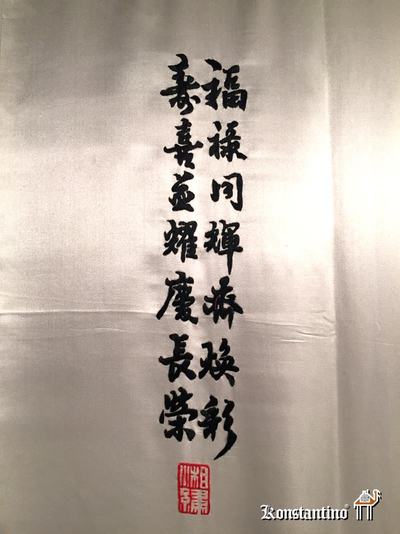 福祿同輝齊煥彩
壽喜並耀慶長榮
湘繡
Konstantino®